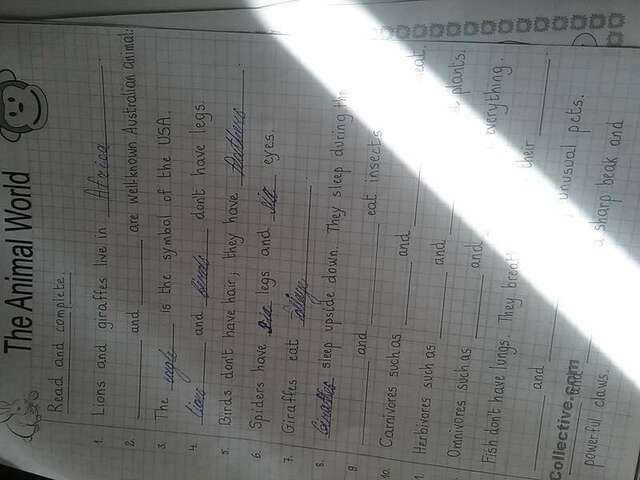 The Animal World
Read and complete.
1. Lions and giraffes live in Africa.
2. ________ and ________ are well-known Australian animals
3. The eagle is the symbol of the USA.
4. lions and birds don't have legs.
5. Birds don't have hair; they have feathers.
6. Spiders have six legs and six eyes.
7. Giraffes eat foliage.
8. Giraffes sleep upside down. They sleep during the
9. ________ and ________ eat insects
10. Carnivores such as ________ and ________ eat.
Herbivores such as ________ and ________ plants.
Omnivores such as ________ and ________ everything.
Fish don't have lungs. They breath their ________.
________ and ________ unusual pets.
Collective.com
________ and ________ a sharp beak and
powerful claws.